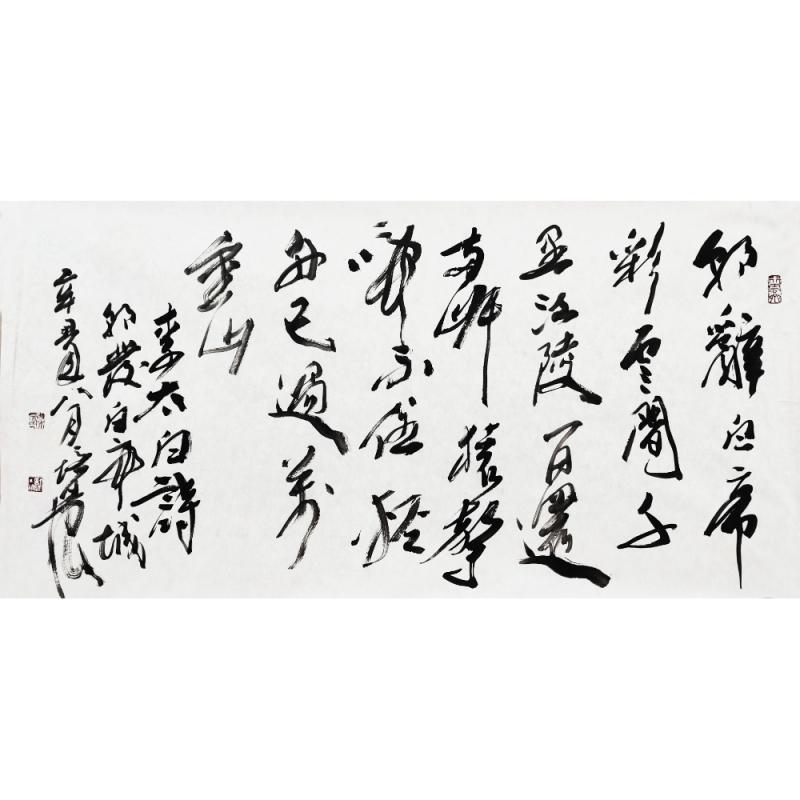 朝辭白帝
彩雲間千
里江陵一日還
兩岸猿聲
啼不住輕
舟已過萬
重山
李太白詩
朝發白帝城
辛丑八月